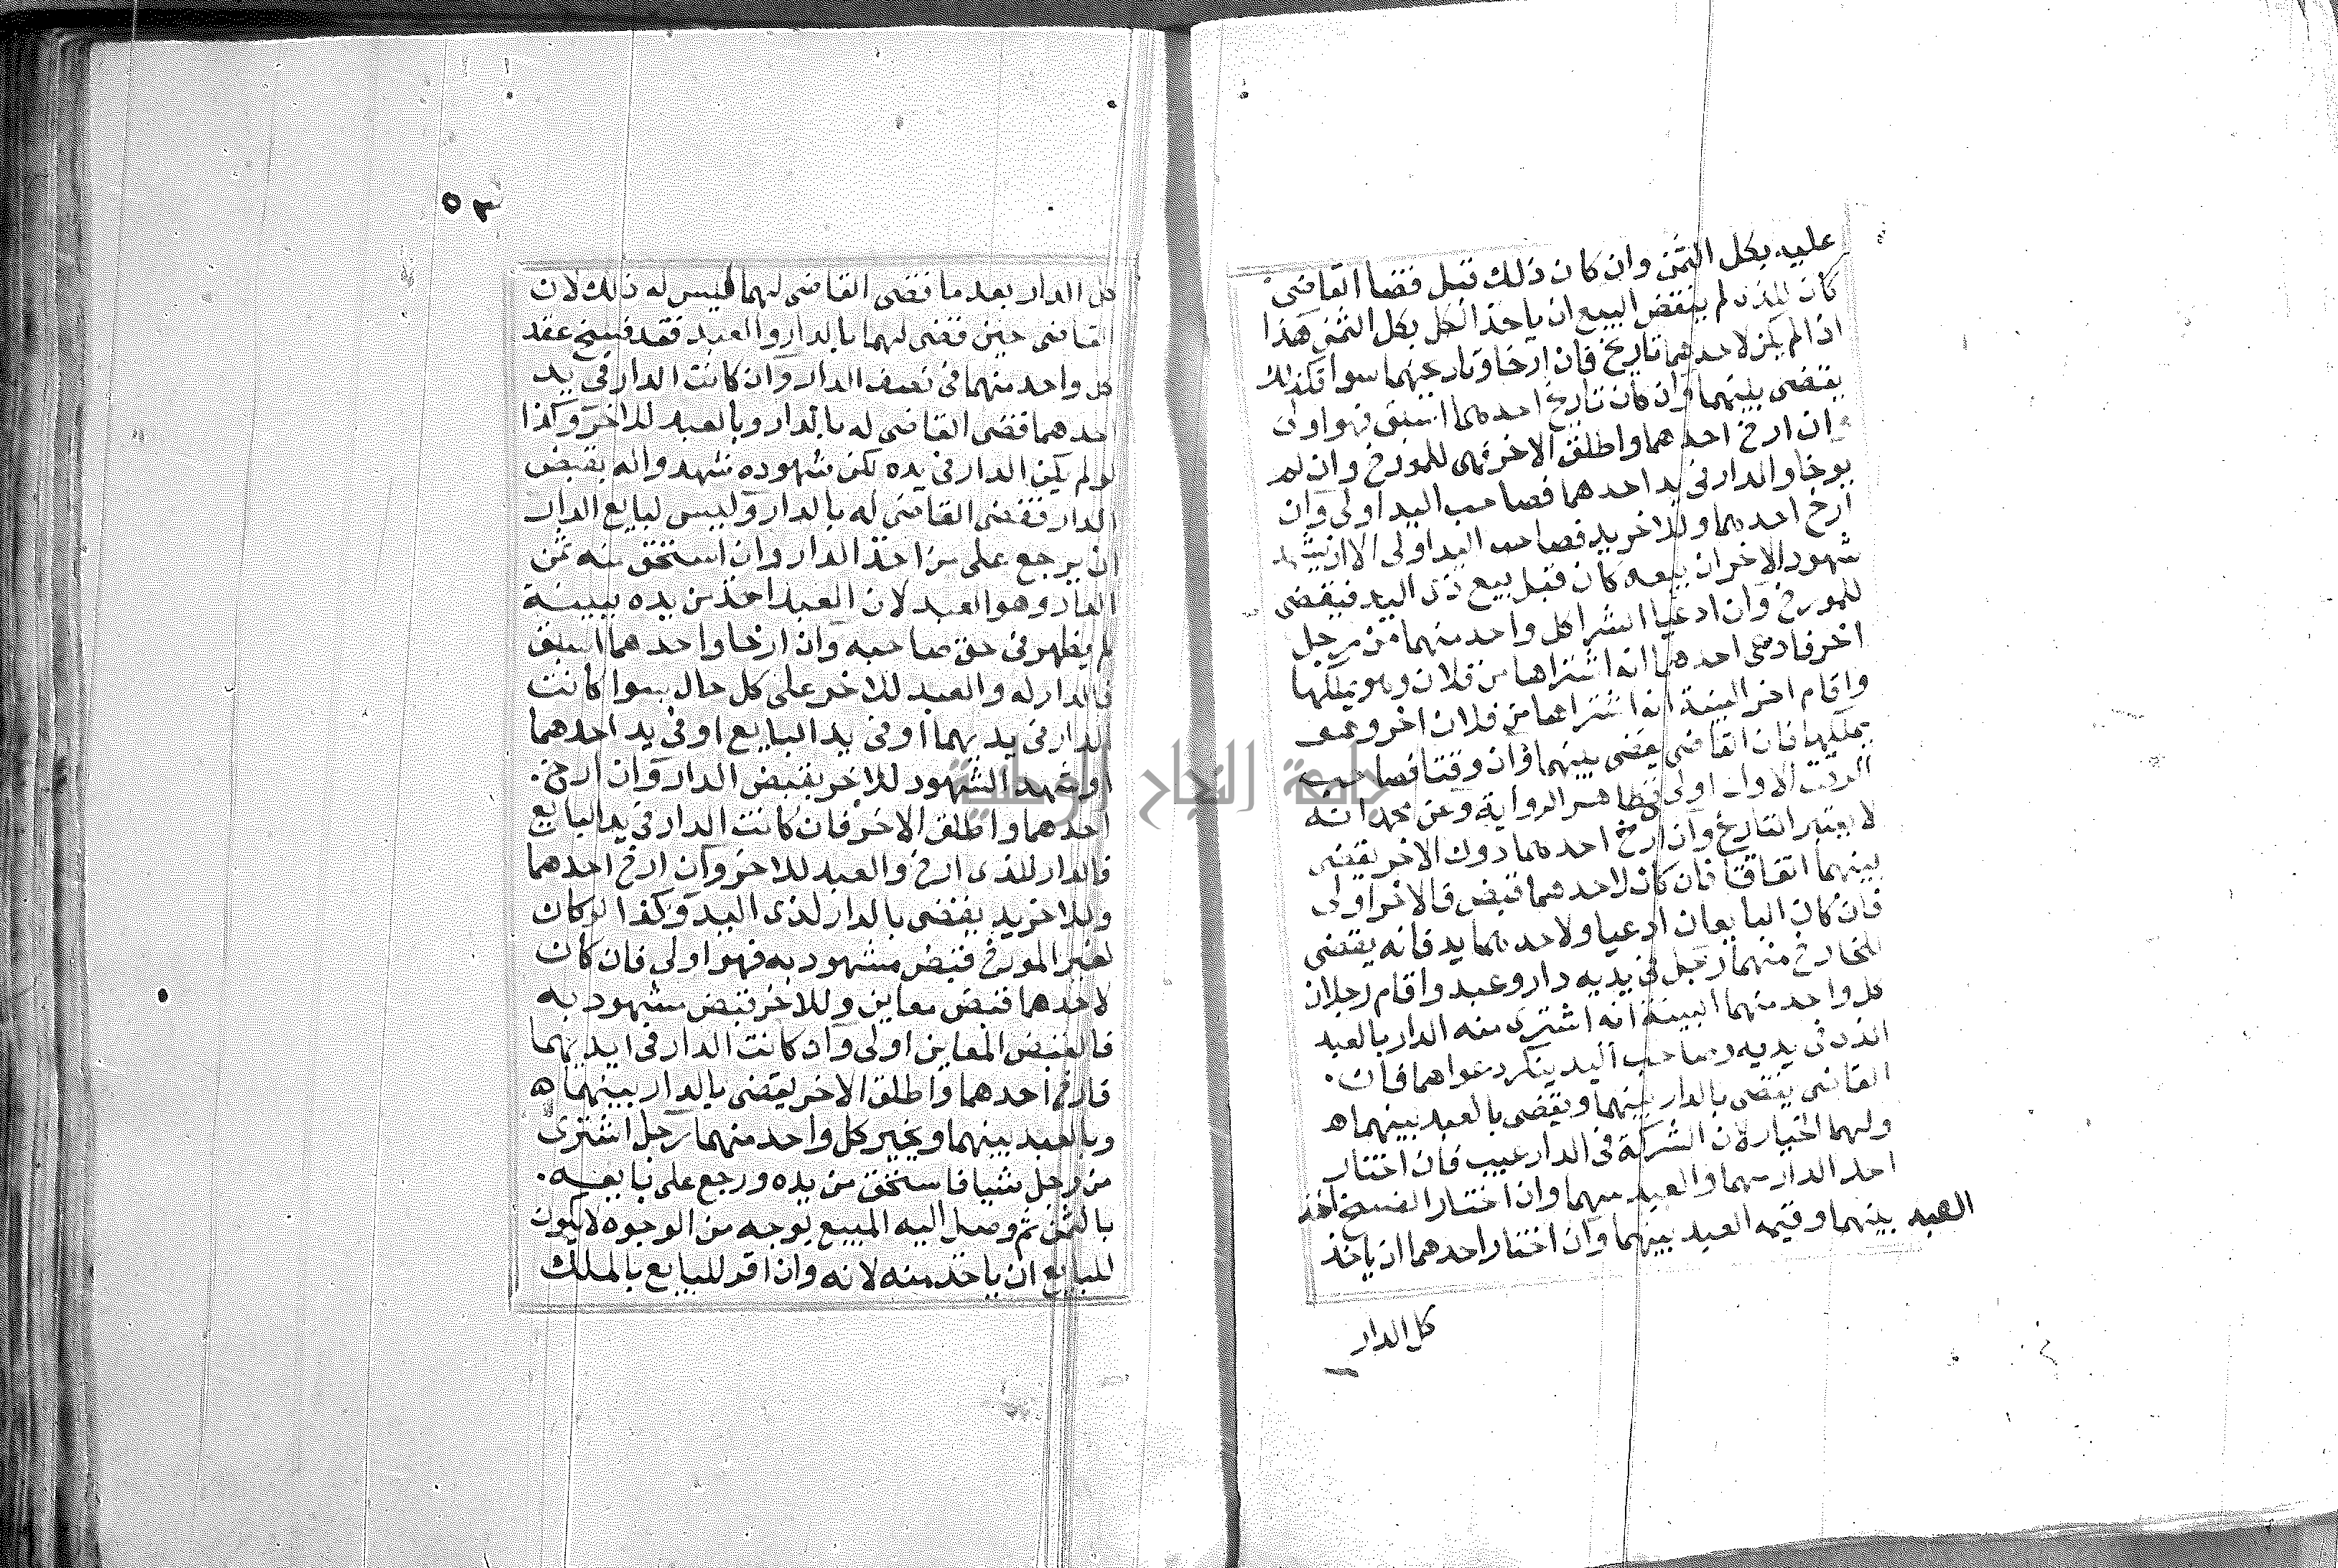 عليه بكل الثمن وان كان ذلك قبل قضا القاضى
كان للذى لم ينقض البيع ان ياخذ الكل بكل الثمن هذا
اذا لم يكن لاحدهما تاريخ فان ارخا وتاريخهما سوا فكذلك
يقضى بينهما وان كان تاريخ احدهما اسبق فهو اولى
وان ارخ احدهما واطلق الاخر فهى للمورخ وان لم
يورخا والدار فى يد احدهما فصاحب اليد اولى وان
ارخ احدهما وللاخر يد فصاحب اليد اولى الا ان يشهد
شهود الاخر ان بيعه كان قبل بيع ذى اليد فيقضى
للمورخ وان ادعيا الشرا كل واحد منهما من رجل
اخر فادعى احدهما انه اشتراها من فلان وهو يملكها
واقام اخر البينة انه اشتراها من فلان اخر وهو
يملكها فان القاضى يقضى بينهما وان وقتا فصاحب
الوقت الاول اولى فى ظاهر الرواية وعن محمد انه
لا يعتبر التاريخ وان ارخ احدهما دون الاخر يقضى
بينهما اتفاقا فان كان لاحدهما قبض فالاخر اولى
فان كان البايعان ادعيا ولاحدهما يد فانه يقضى
للخارج منهما رجل فى يديه دار وعبد واقام رجلان
كل واحد منهما البينة انه اشترى منه الدار بالعبد
الذى فى يديه وصاحب اليد ينكر دعواهما فان
القاضى يقضى بالدار بينهما ويقضى بالعبد بينهما
ولهما الخيار لان الشركة فى الدار عيب فان اختار
اخذ الدار بينهما والعبد بينهما وان اختار الفسخ اخذ
العبد بينهما وقيمه العبد بينهما وان اختار احدهما ان ياخذ
كل الدار
٥٣
كل الدار بعد ما قضى القاضى لهما فليس له ذلك لان
القاضى حين قضى لهما بالدار والعبد فقد فسخ عقد
كل واحد منهما فى نصف الدار وان كانت الدار فى يد
احدهما قضى القاضى له بالدار وبالعبد للاخر وكذا
لو لم يكن الدار فى يده لكن شهوده شهدوا له بقبض
الدار فقضى القاضى له بالدار وليس لبايع الدار
ان يرجع على من اخذ الدار وان استحق منه ثمن
الدار وهو العبد لان العبد اخذ من يده ببينة
لم يظهر فى حق صاحبه وان ارخا واحدهما اسبق
فالدار له والعبد للاخر على كل حال سوا كانت
الدار فى يديهما او فى يد البايع او فى يد احدهما
او شهد الشهود للاخر بقبض الدار وان ارخ
احدهما واطلق الاخر فان كانت الدار فى يد البايع
فالدار للذى ارخ والعبد للاخر وان ارخ احدهما
وللاخر يد يقضى بالدار لذى اليد وكذا لو كان
لغير المورخ قبض مشهود به فهو اولى فان كان
لاحدهما قبض معاين وللاخر قبض مشهود به
فالقبض المعاين اولى وان كانت الدار فى ايديهما
فارخ احدهما واطلق الاخر يقضى بالدار بينهما
وبالعبد بينهما ويخير كل واحد منهما رجل اشترى
من رجل شيا فاستحق من يده ورجع على بايعه
بالثمن ثم وصل اليه المبيع بوجه من الوجوه لا يكون
للبايع ان ياخذ منه لانه وان اقر للبايع بالملك
جامعة النجاح الوطنية